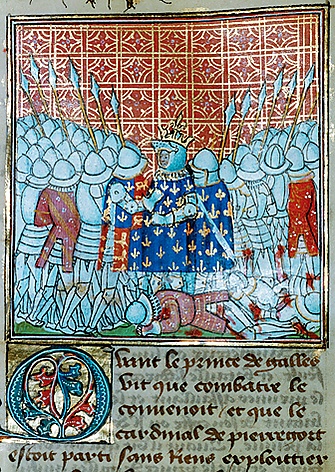 Quant le prince de galles
vit que combatre le
convenoit / et que le
cardinal de pierregort
estoit parti sans riens exploittier